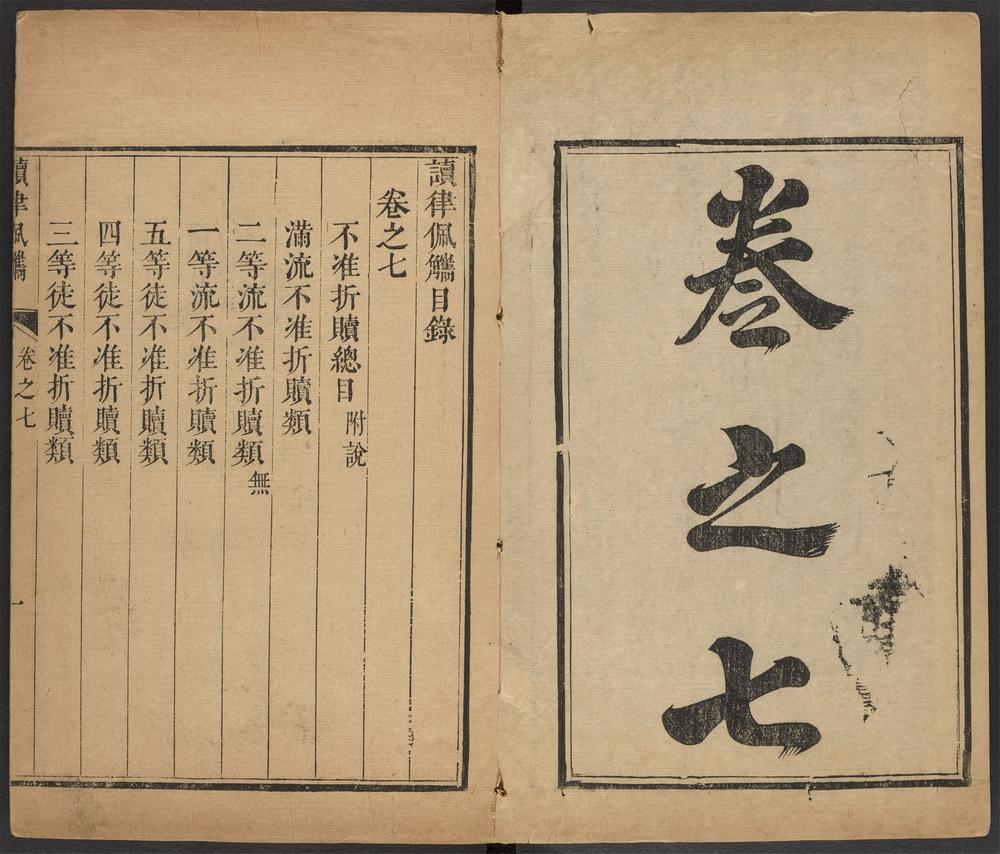 卷之七
讀律佩觿目錄
卷之七
不准折贖總目 附說
滿流不准折贖類
二等流不准折贖類 無
一等流不准折贖類
五等徒不准折贖類
四等徒不准折贖類
三等徒不准折贖類
讀律佩觿 卷之七 一